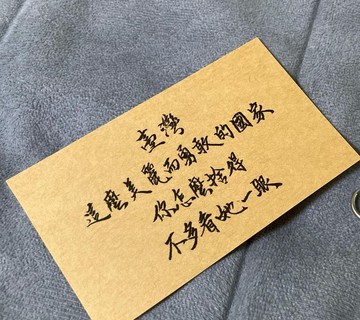 臺灣
這麼美麗而勇敢的國家
你怎麼捨得
不多看她一眼